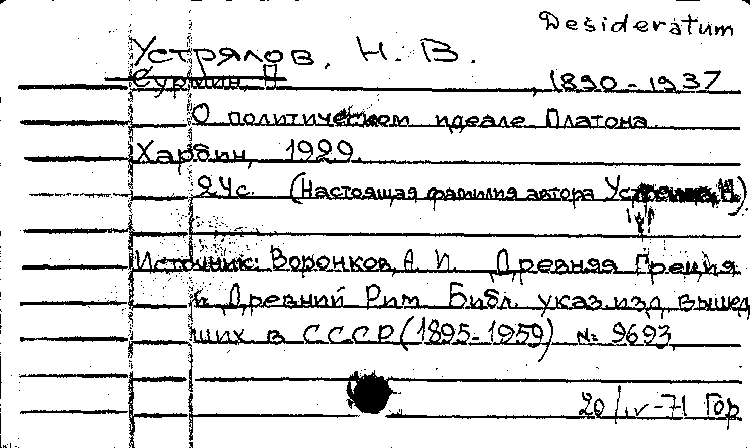 Desideratum
Устрялов, Н. В.
Сурмин, П , 1890-1937
О политическом идеале Платона.
Харбин, 1929.
24с. (Настоящая фамилия автора
Источник: Воронков, А. И. Древняя Греция
и Древний Рим. Библ. указ. изд., вышед
ших в СССР (1895-1959) № 9693.
20/IV-71 Гор